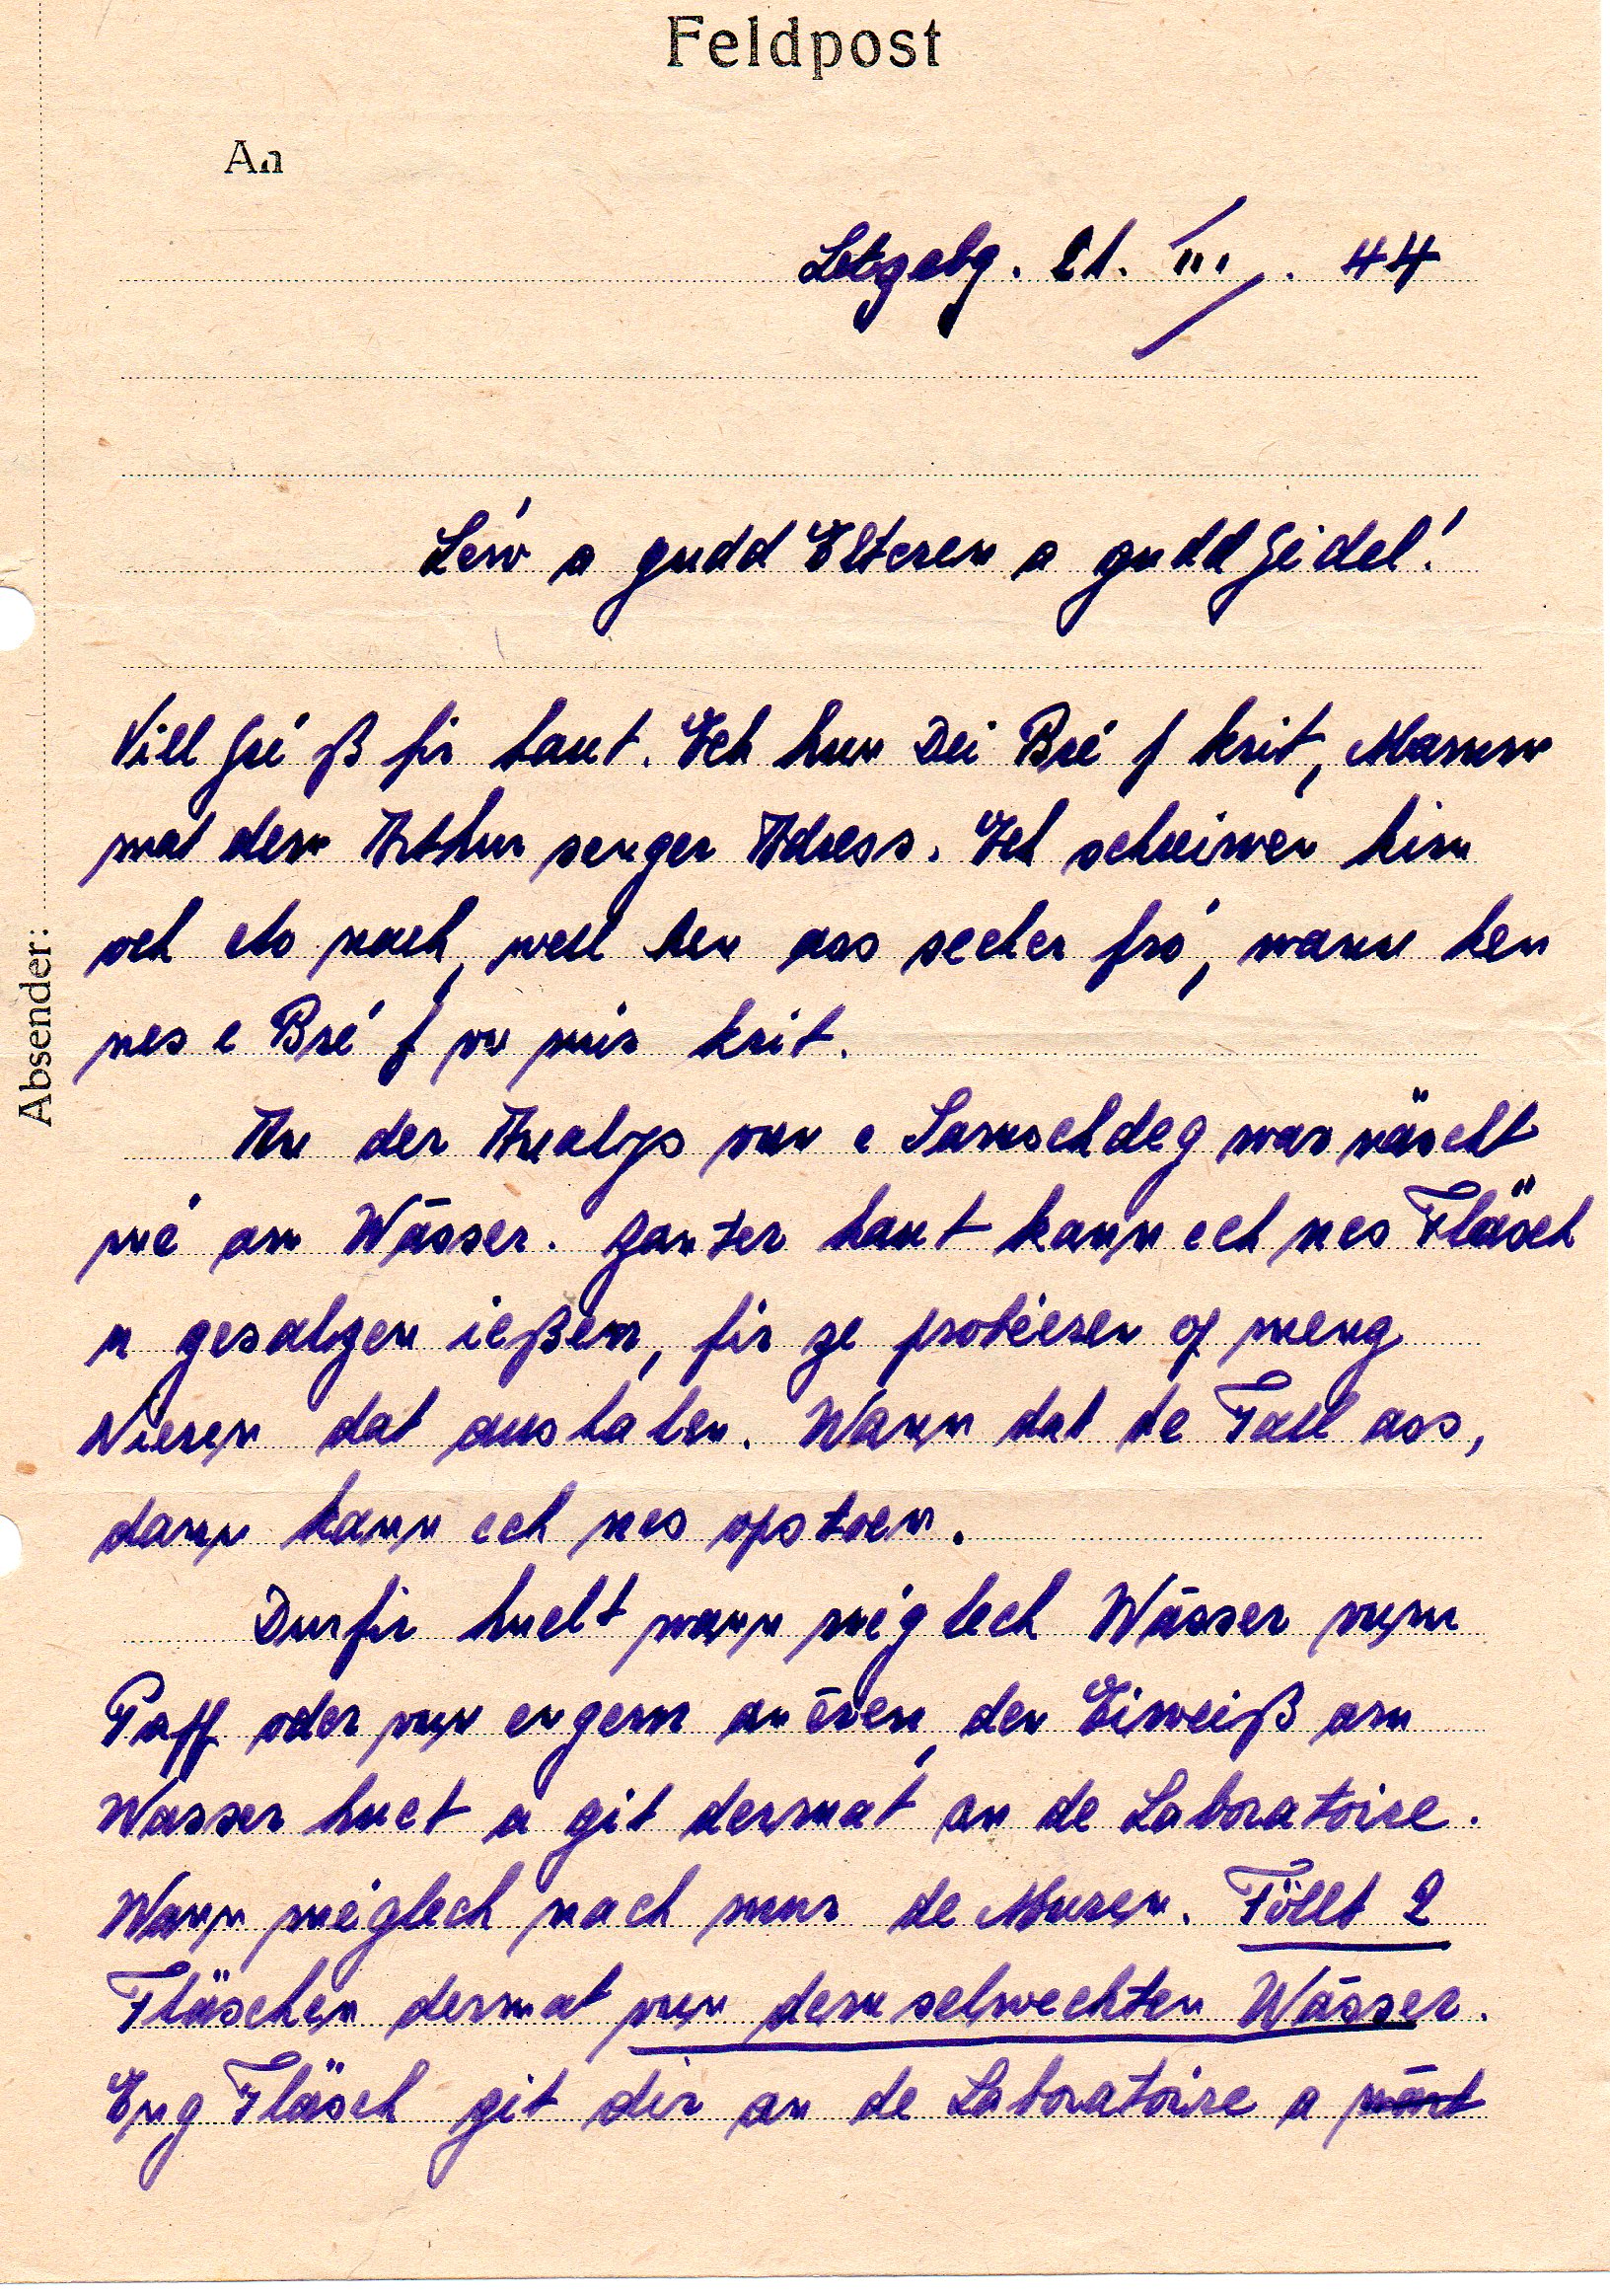 Feldpost
An
Letzebg. 21. III. 44
Absender:
Léiv a gudd Elteren a gudd Gidel!
Vill Gré ß fir haut. Ech hun Dei Bré f krit, Mamm
mat dem Arthur senger Adress. Ech schreiwen him
och eto nach, well hen ass secher fró, wann hen
nes e Bré f vu mir krit.
An der Analys vun e Samschdeg war näscht
mé am Wâsser. Ganzer haut kann ech nes Fläsch
n gesalzen ießen, fir ze probéeren op meng
Nieren dat aushalen. Wann dat de Fall ass,
dann kann ech nes opstoen.
Durfir huelt wann méglech Wâsser vum
Paff oder vun engem anēren, den Eiweiß am
Wasser huet a git dermat an de Laboratoire.
Wann méglech nach mur de Muren. Föllt 2
Fläschen dermat vun dem selwechten Wâsser.
Eng Fläsch git dir an de Laboratoire a